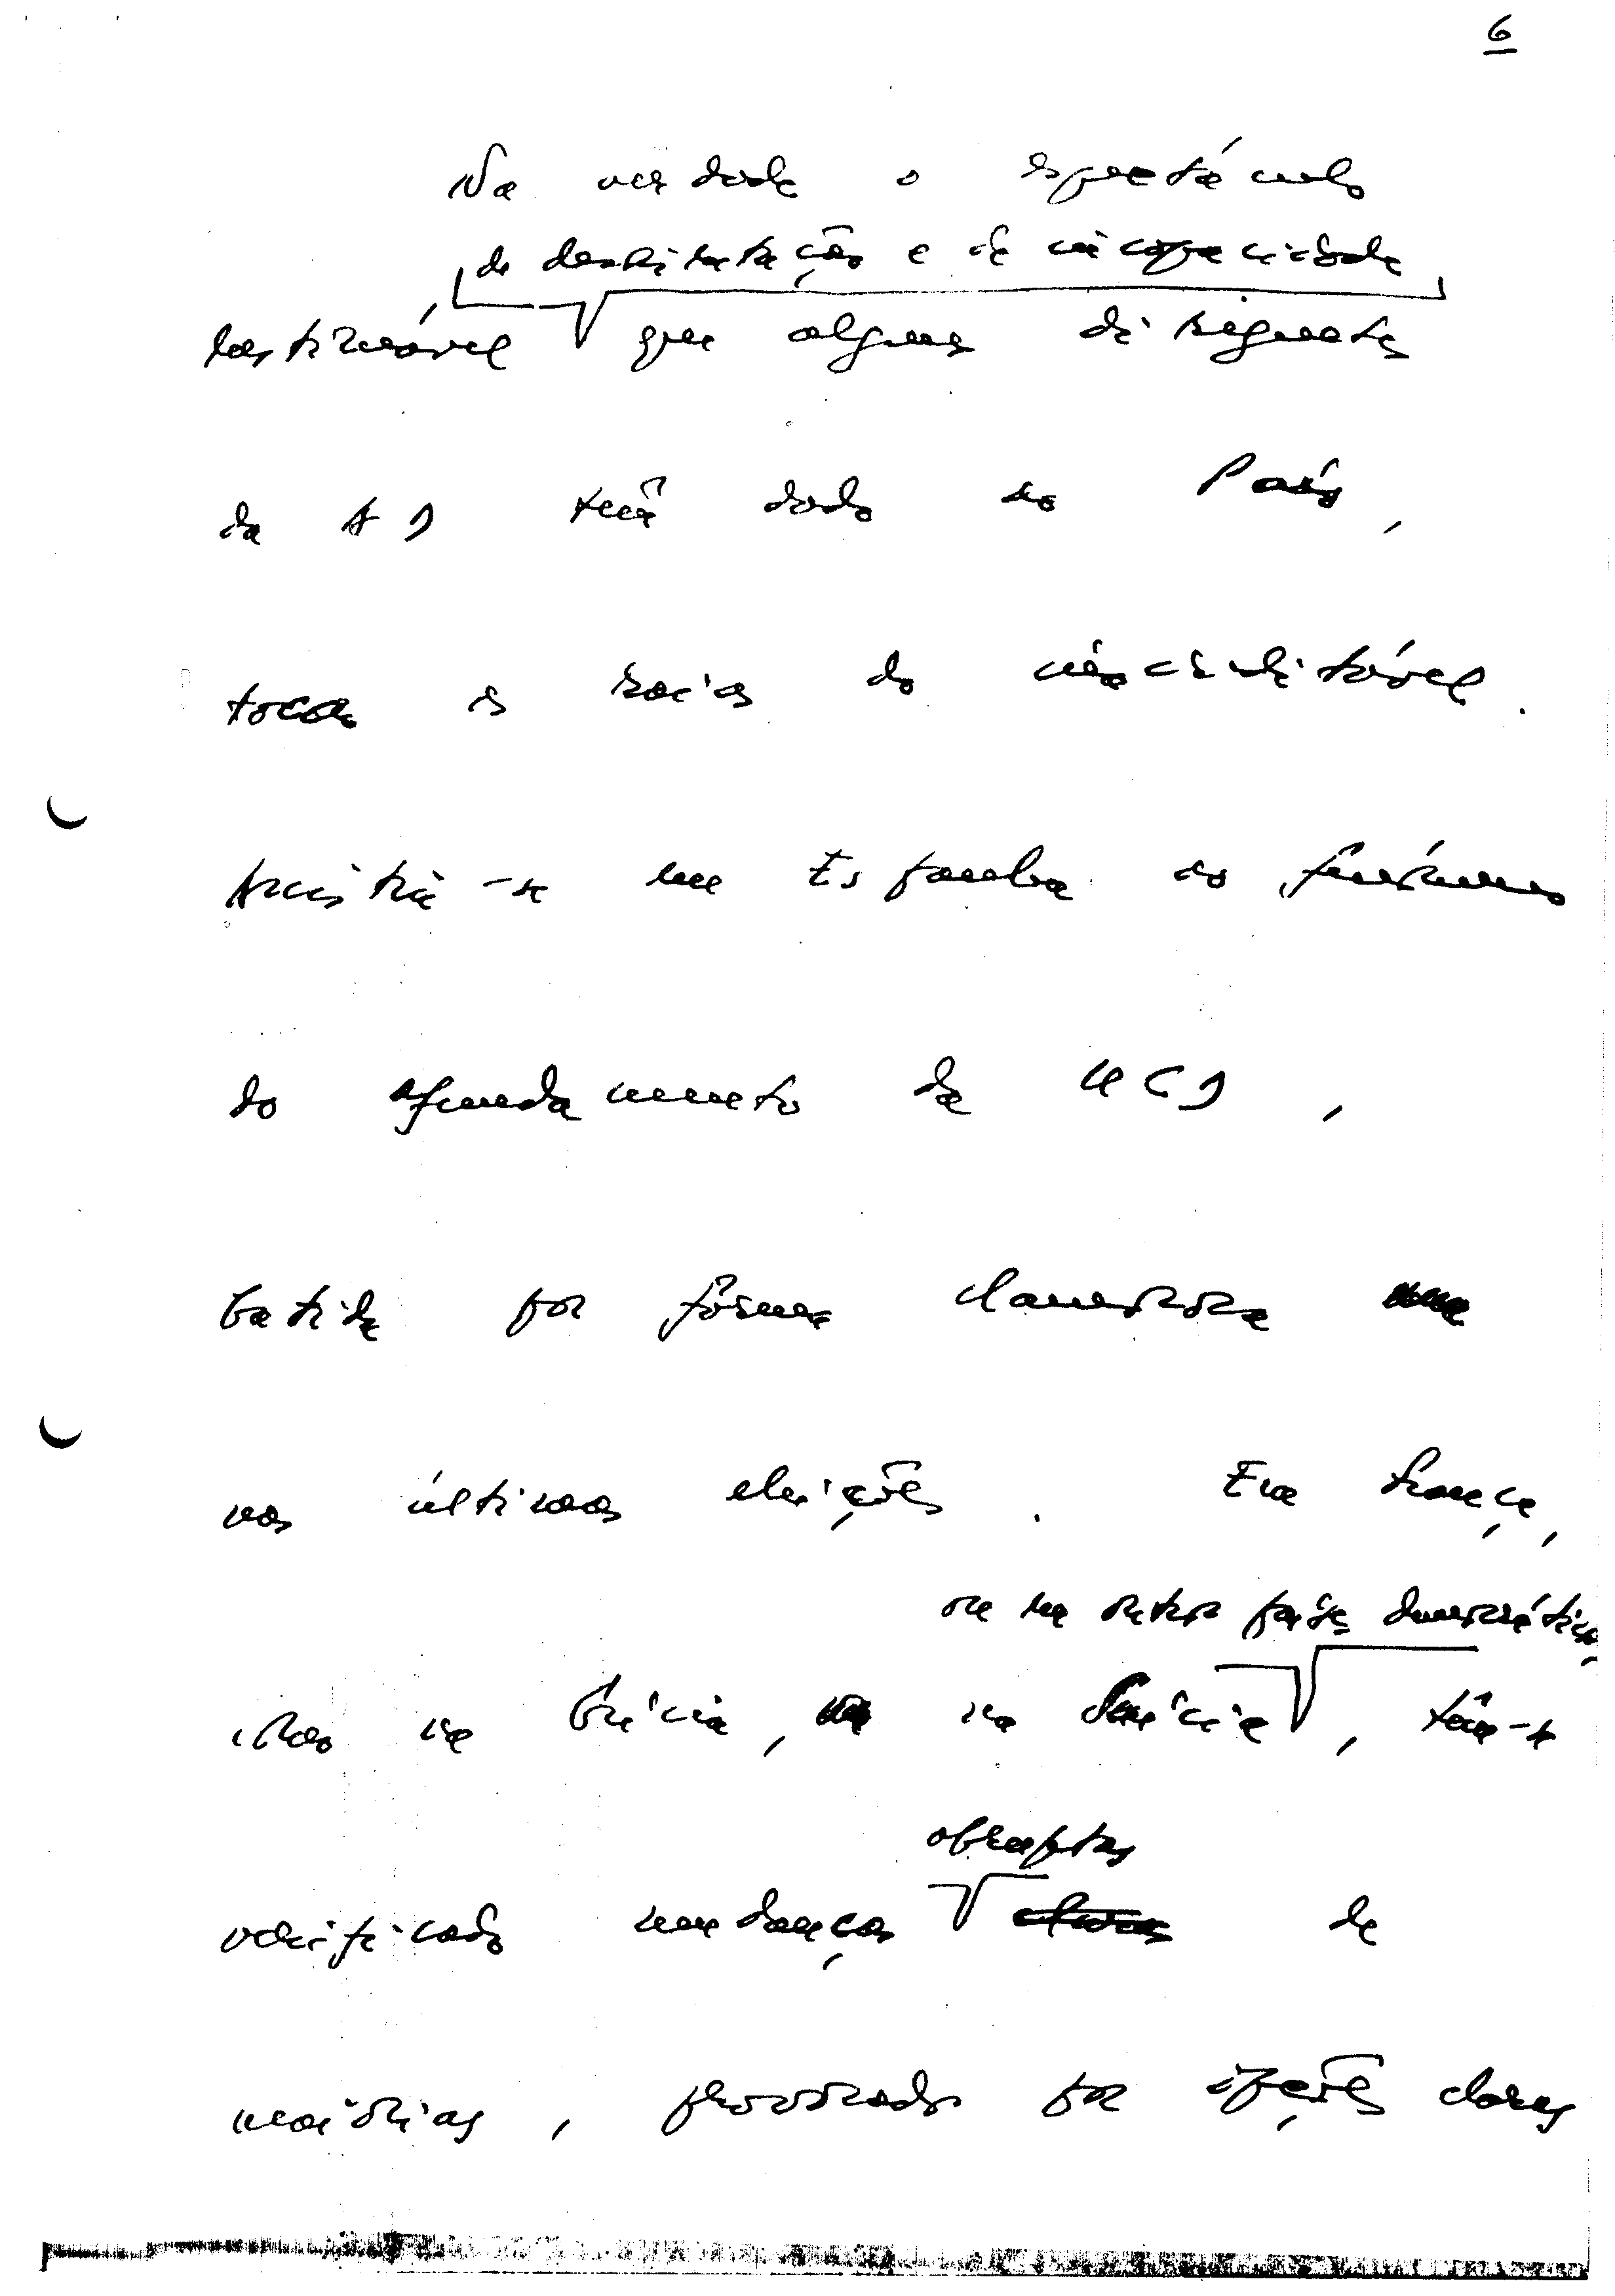 6
Na verdade o espectáculo
de desorientação e de incapacidade
lastimável que alguns dirigentes
da AD têm dado ao País,
toca as raias do inacreditável.
Assistiu-se em Espanha ao fenómeno
do afundamento da UCD,
batida por forma clamorosa
nas últimas eleições. Em França,
ou em outros países democráticos,
mas na Grécia, na Suécia, têm-se
abruptas
verificado mudanças de
maiorias, provocadas por opções claras